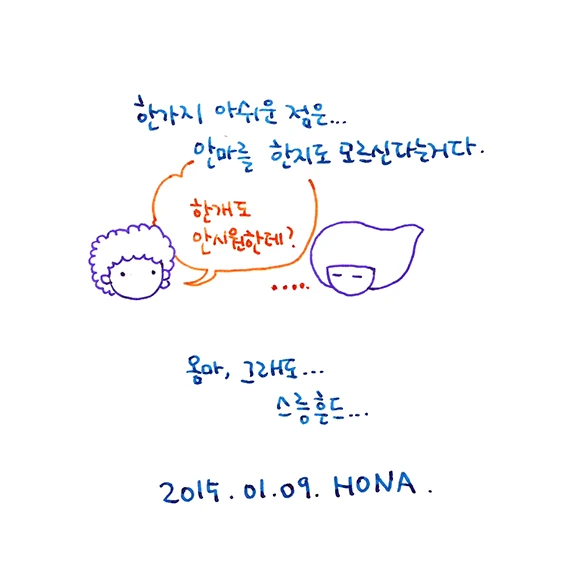 한가지 아쉬운 점은...
안마를 한지도 모르신다는거다.
한개도
안시원한데?
....
옹마, 그래도...
스릉흔드...
2015.01.09. HONA.